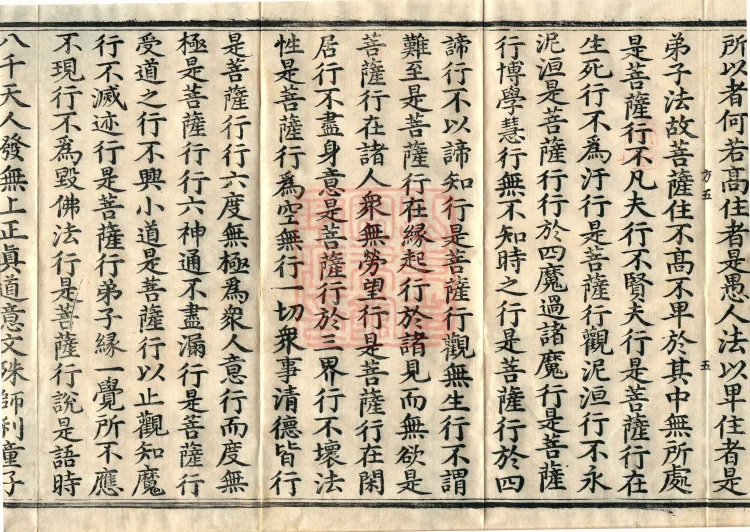 所以者何若髙住者是愚人法以卑住者是
弟子法故菩薩住不髙不卑於其中無所處
是菩薩行不凡夫行不賢夫行是菩薩行在
生死行不為汙行是菩薩行觀泥洹行不永
泥洹是菩薩行行於四魔過諸魔行是菩薩
行博學慧行無不知時之行是菩薩行於四
諦行不以諦知行是菩薩行觀無生行不謂
難至是菩薩行在緣起行於諸見而無欲是
菩薩行在諸人衆無勞望行是菩薩行在閑
居行不盡身意是菩薩行於三界行不壞法
性是菩薩行爲空無行一切衆事清德皆行
是菩薩行行六度無極爲衆人意行而度無
極是菩薩行行六神通不盡漏行是菩薩行
受道之行不興小道是菩薩行以止觀知魔
行不滅迹行是菩薩行弟子緣一覺所不應
不現行不為毀佛法行是菩薩行說是語時
八千天人發無上正真道意文殊師利童子
方五
五